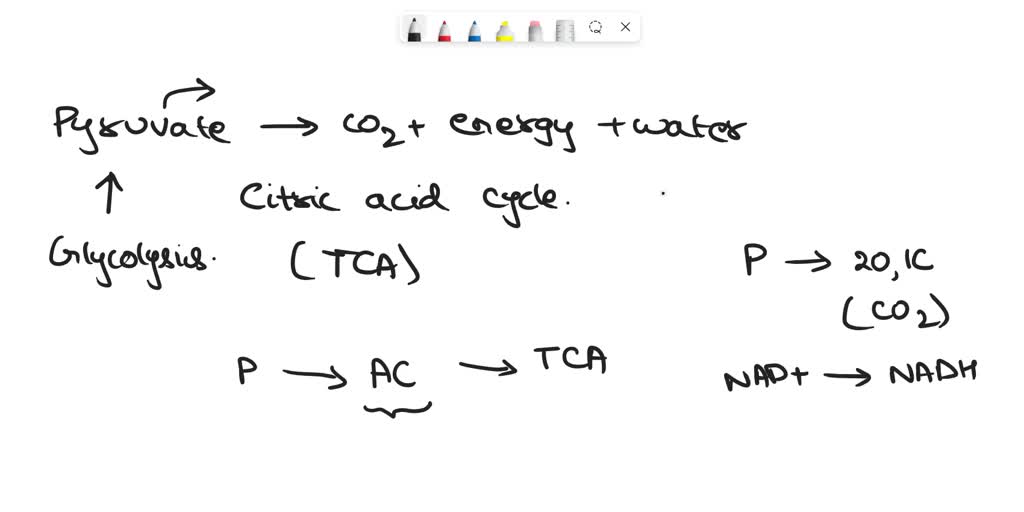 Pyruvate → CO2 + energy + water
↑
Citric acid cycle.
Glycolysis.
(TCA)
P → 2O, 1C
(CO2)
P → AC → TCA
NAD+ → NADH